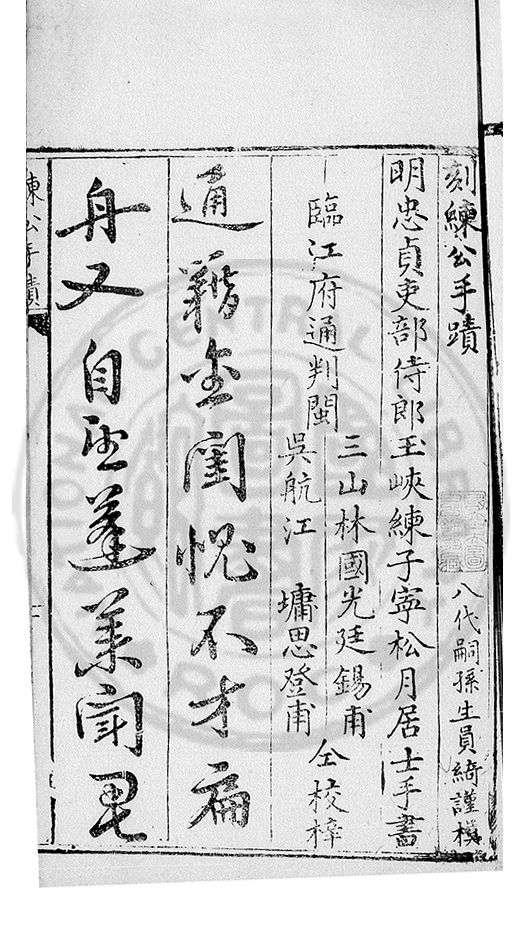 刻練公手蹟
八代嗣孫生員綺謹模
明忠貞吏部侍郎玉峽練子寧松月居士手書
臨江府通判閩
三山林國光廷錫甫
吳航江墉思登甫
仝校梓
通籍金閨愧不才扁
舟又自蓬萊聞
練公手蹟